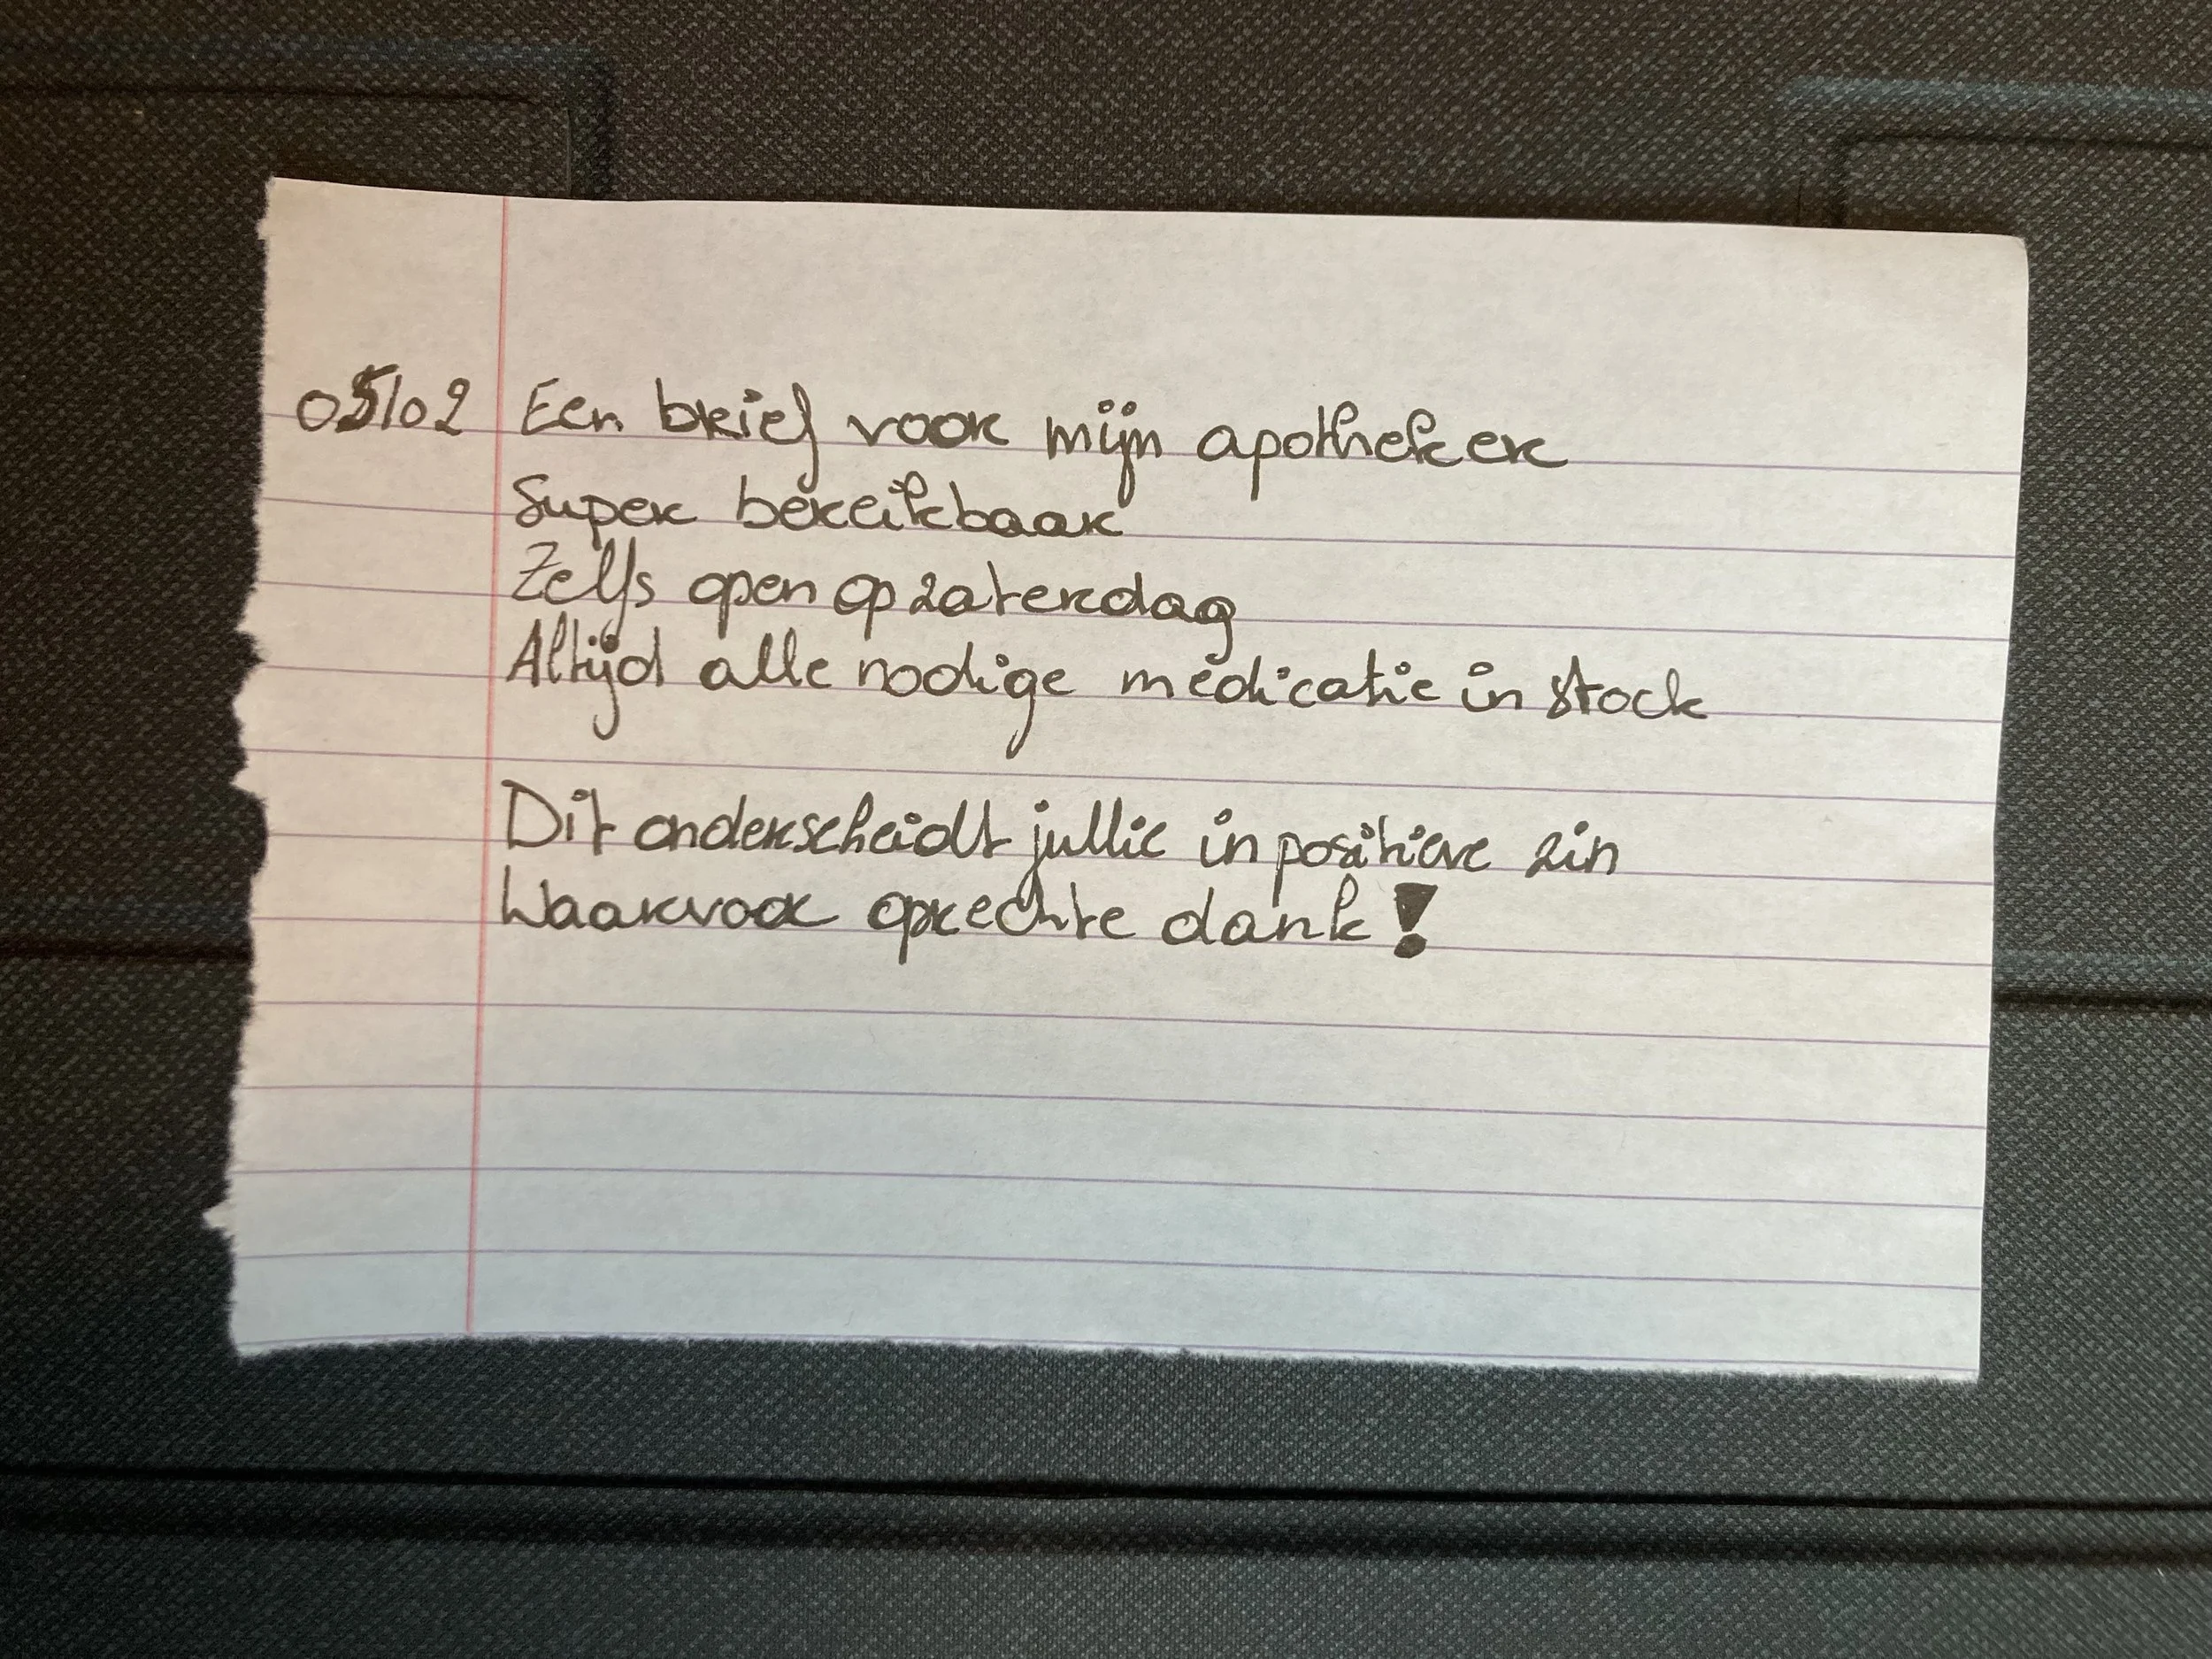 05/02 Een brief voor mijn apotheker
Super bereikbaar
Zelfs open op zaterdag
Altijd alle nodige medicatie in stock
Dit onderscheidt jullie in positieve zin
Waarvoor oprechte dank!